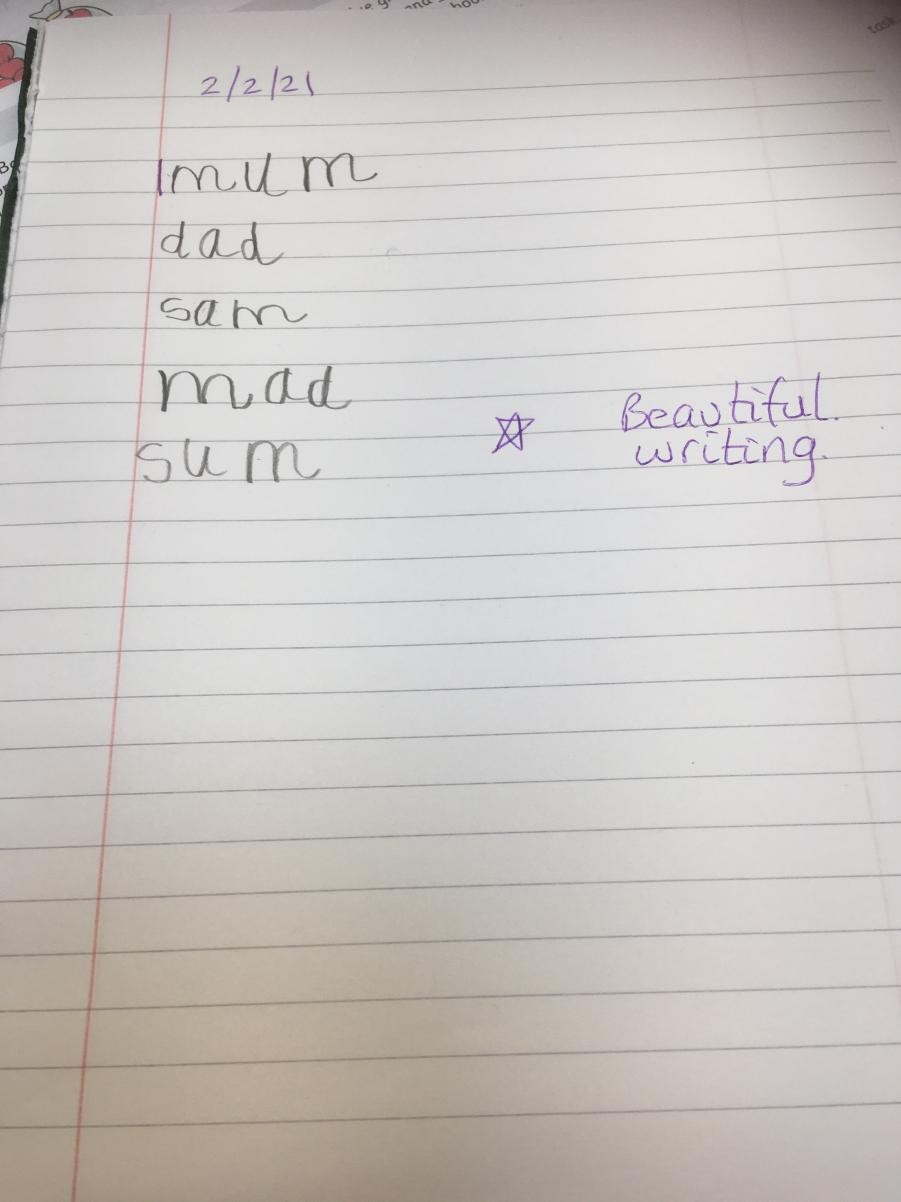 2/2/21
mum
dad
sam
mad
sum
☆ Beautiful.
writing.